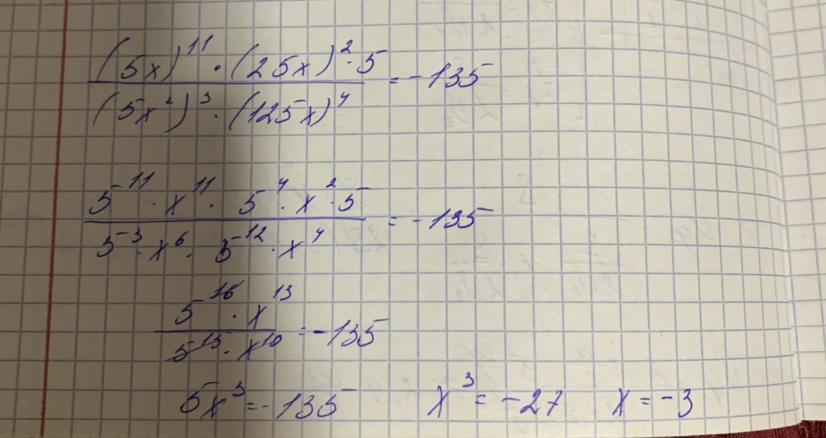 (5x)^11 · (25x)^2 · 5 / (5x^2)^3 · (125x)^4 = -135
5^11 · x^11 · 5^4 · x^2 · 5 / 5^3 · x^6 · 5^12 · x^4 = -135
5^16 · x^13 / 5^15 · x^10 = -135
5x^3 = -135 x^3 = -27 x = -3